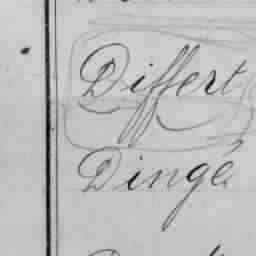 Differt
Dingé